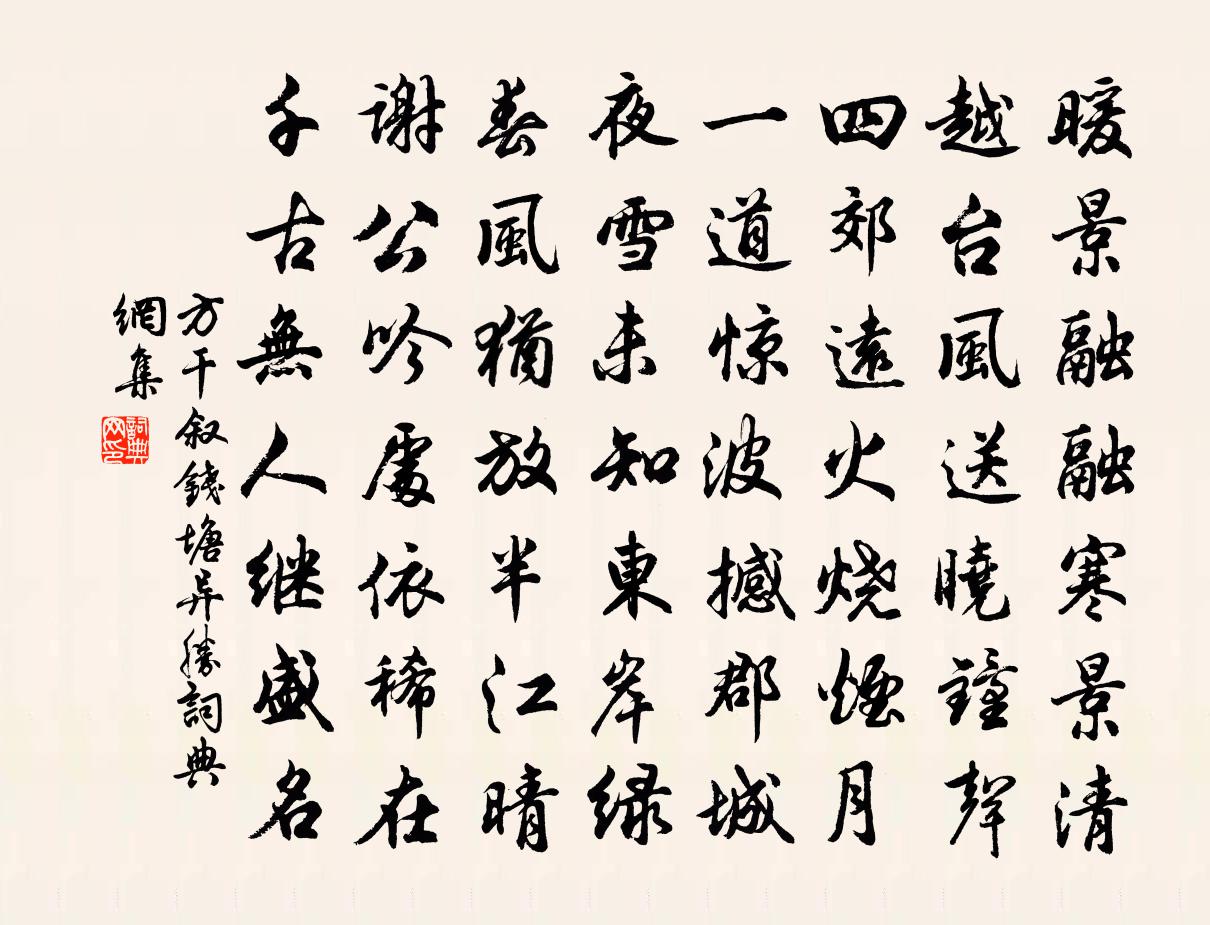 暖景融融寒景清
越台風送曉鐘聲
四郊遠火烧煙月
一道惊波撼郡城
夜雪未知東岸绿
春風猶放半江晴
謝公吟處依稀在
千古無人继盛名
方干叙錢塘异勝詞典
網集
詞典網印